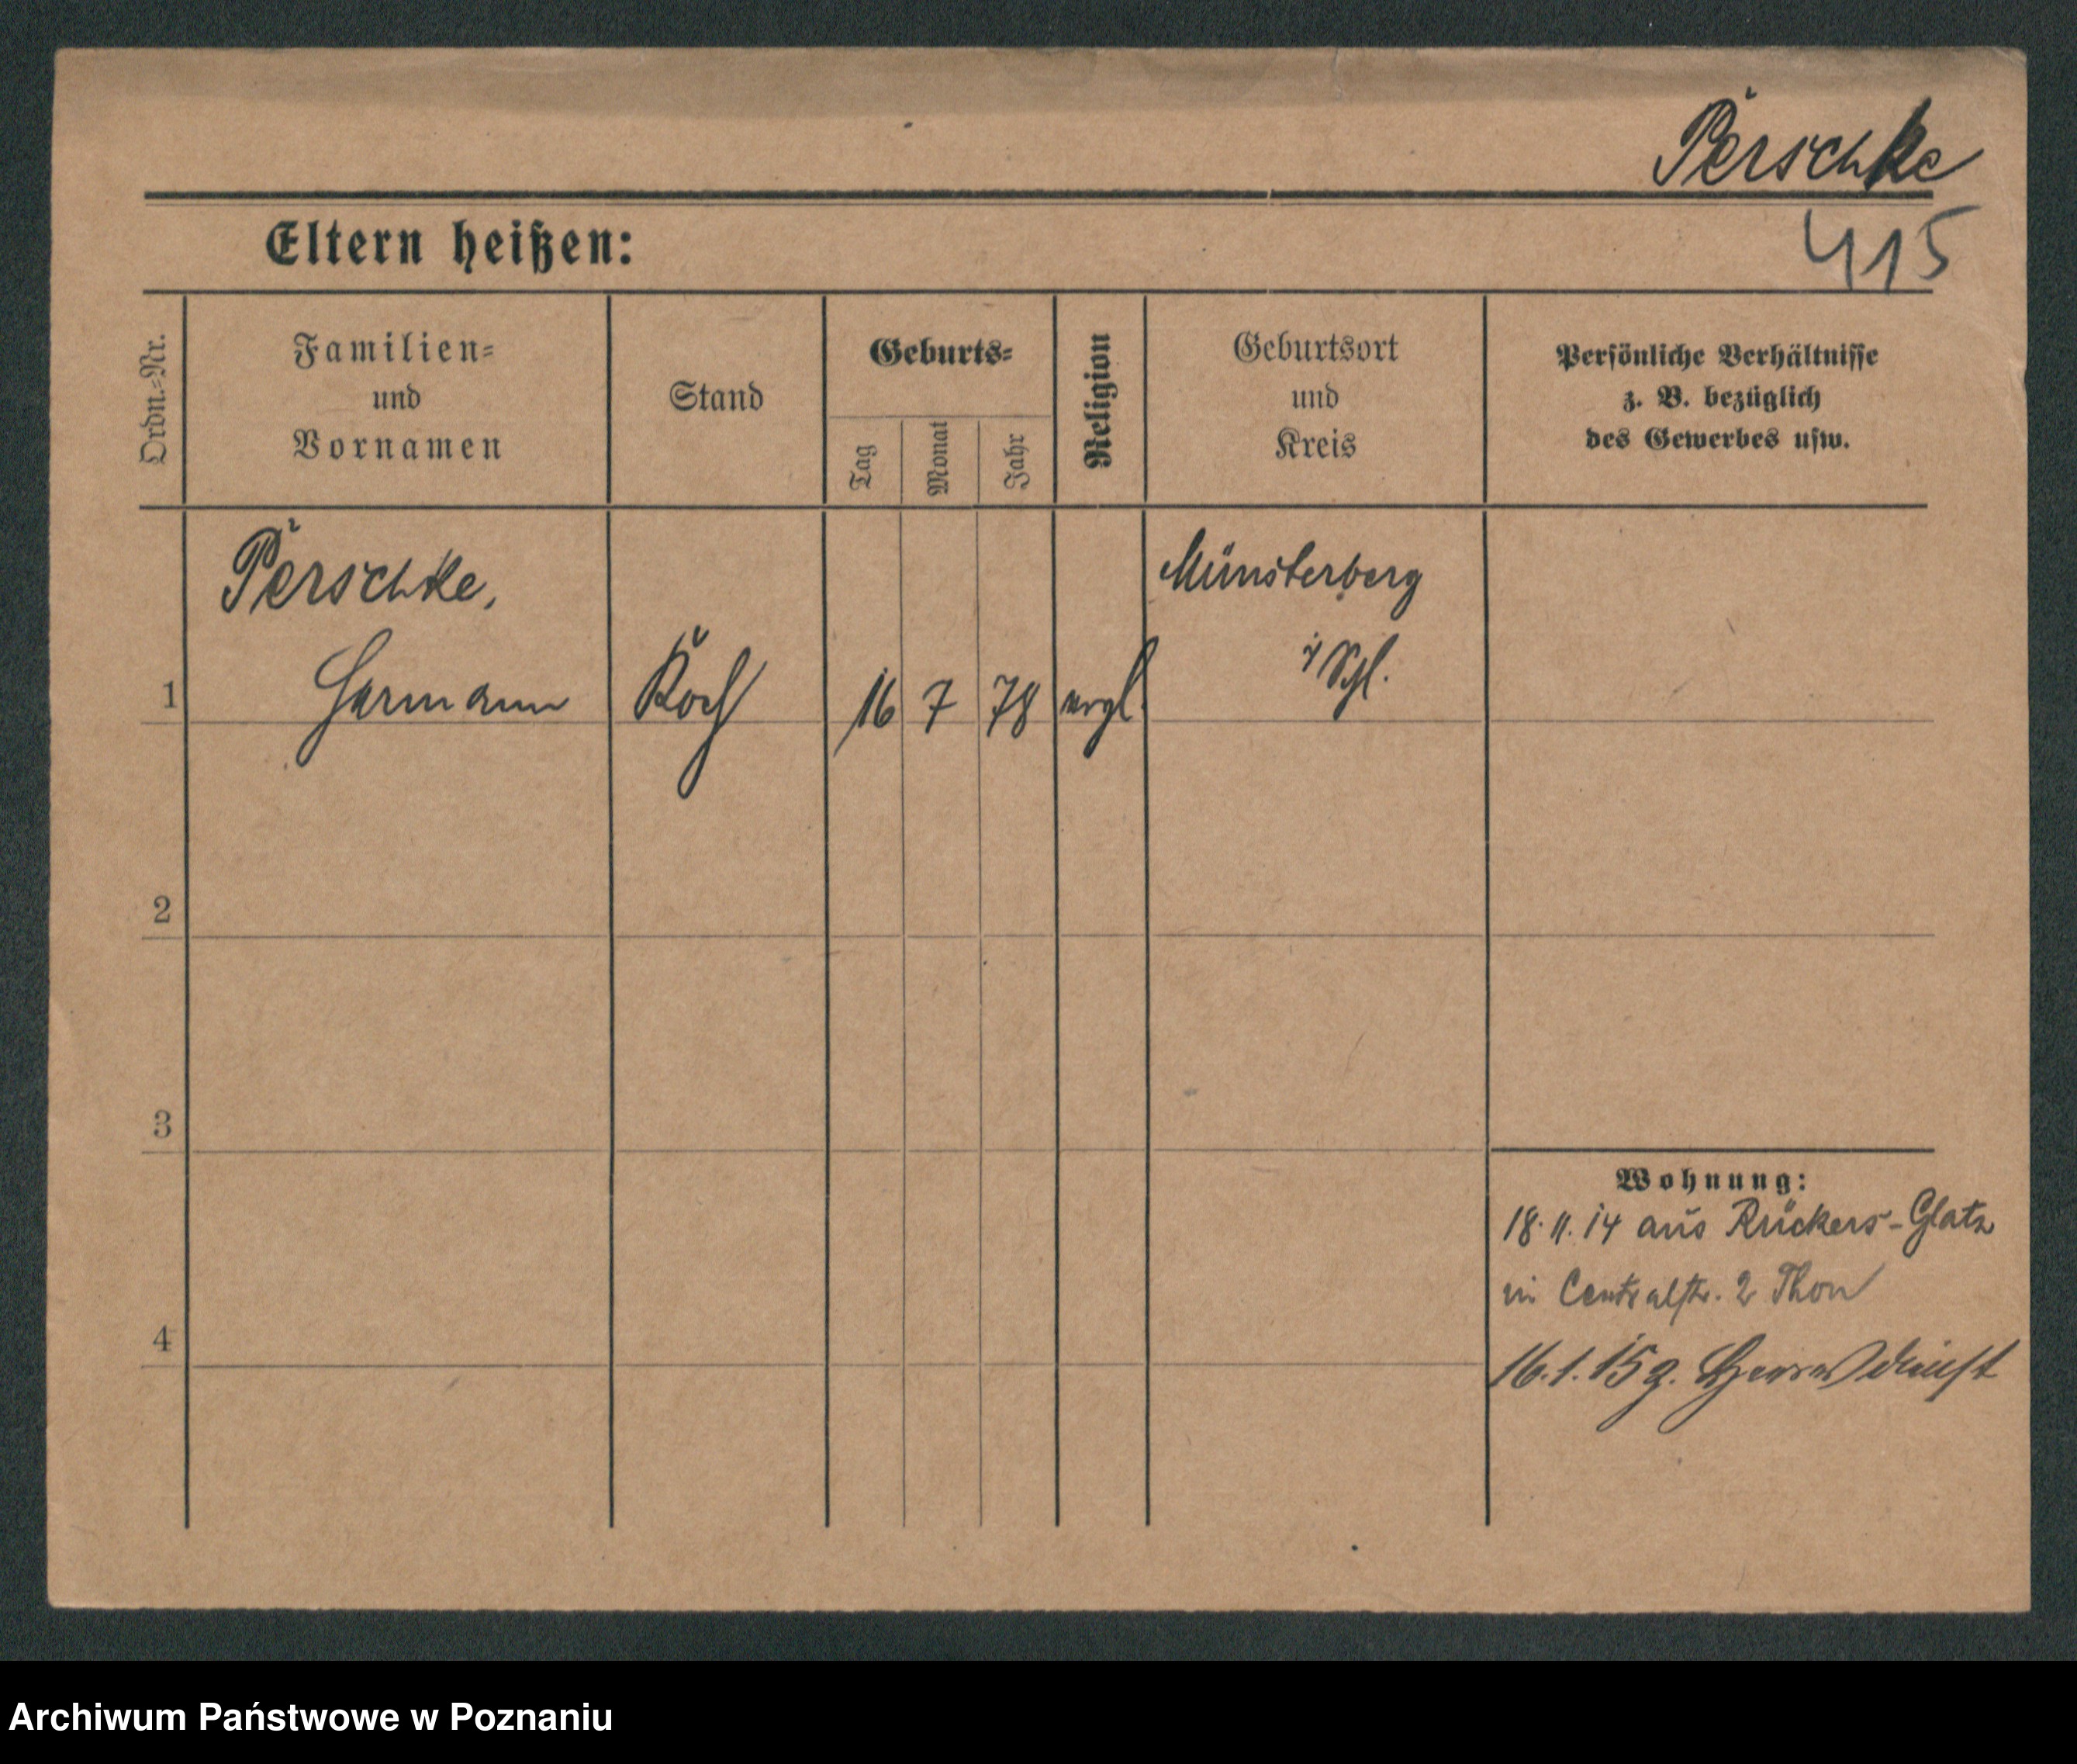 Perschke
415
Eltern heißen:
Ordn.-Nr.
Familien-
und
Vornamen
Stand
Geburts-
Tag
Monat
Jahr
Religion
Geburtsort
und
Kreis
Persönliche Verhältnisse
z. B. bezüglich
des Gewerbes usw.
Perschke,
Hermann
1
Koch
16
7
78
evgl.
Münsterberg
i/Schl.
2
3
4
Wohnung:
18.11.14 aus Rückers-Glatz
in Centralstr. 2 Thon
16.1.15 z.
Archiwum Państwowe w Poznaniu